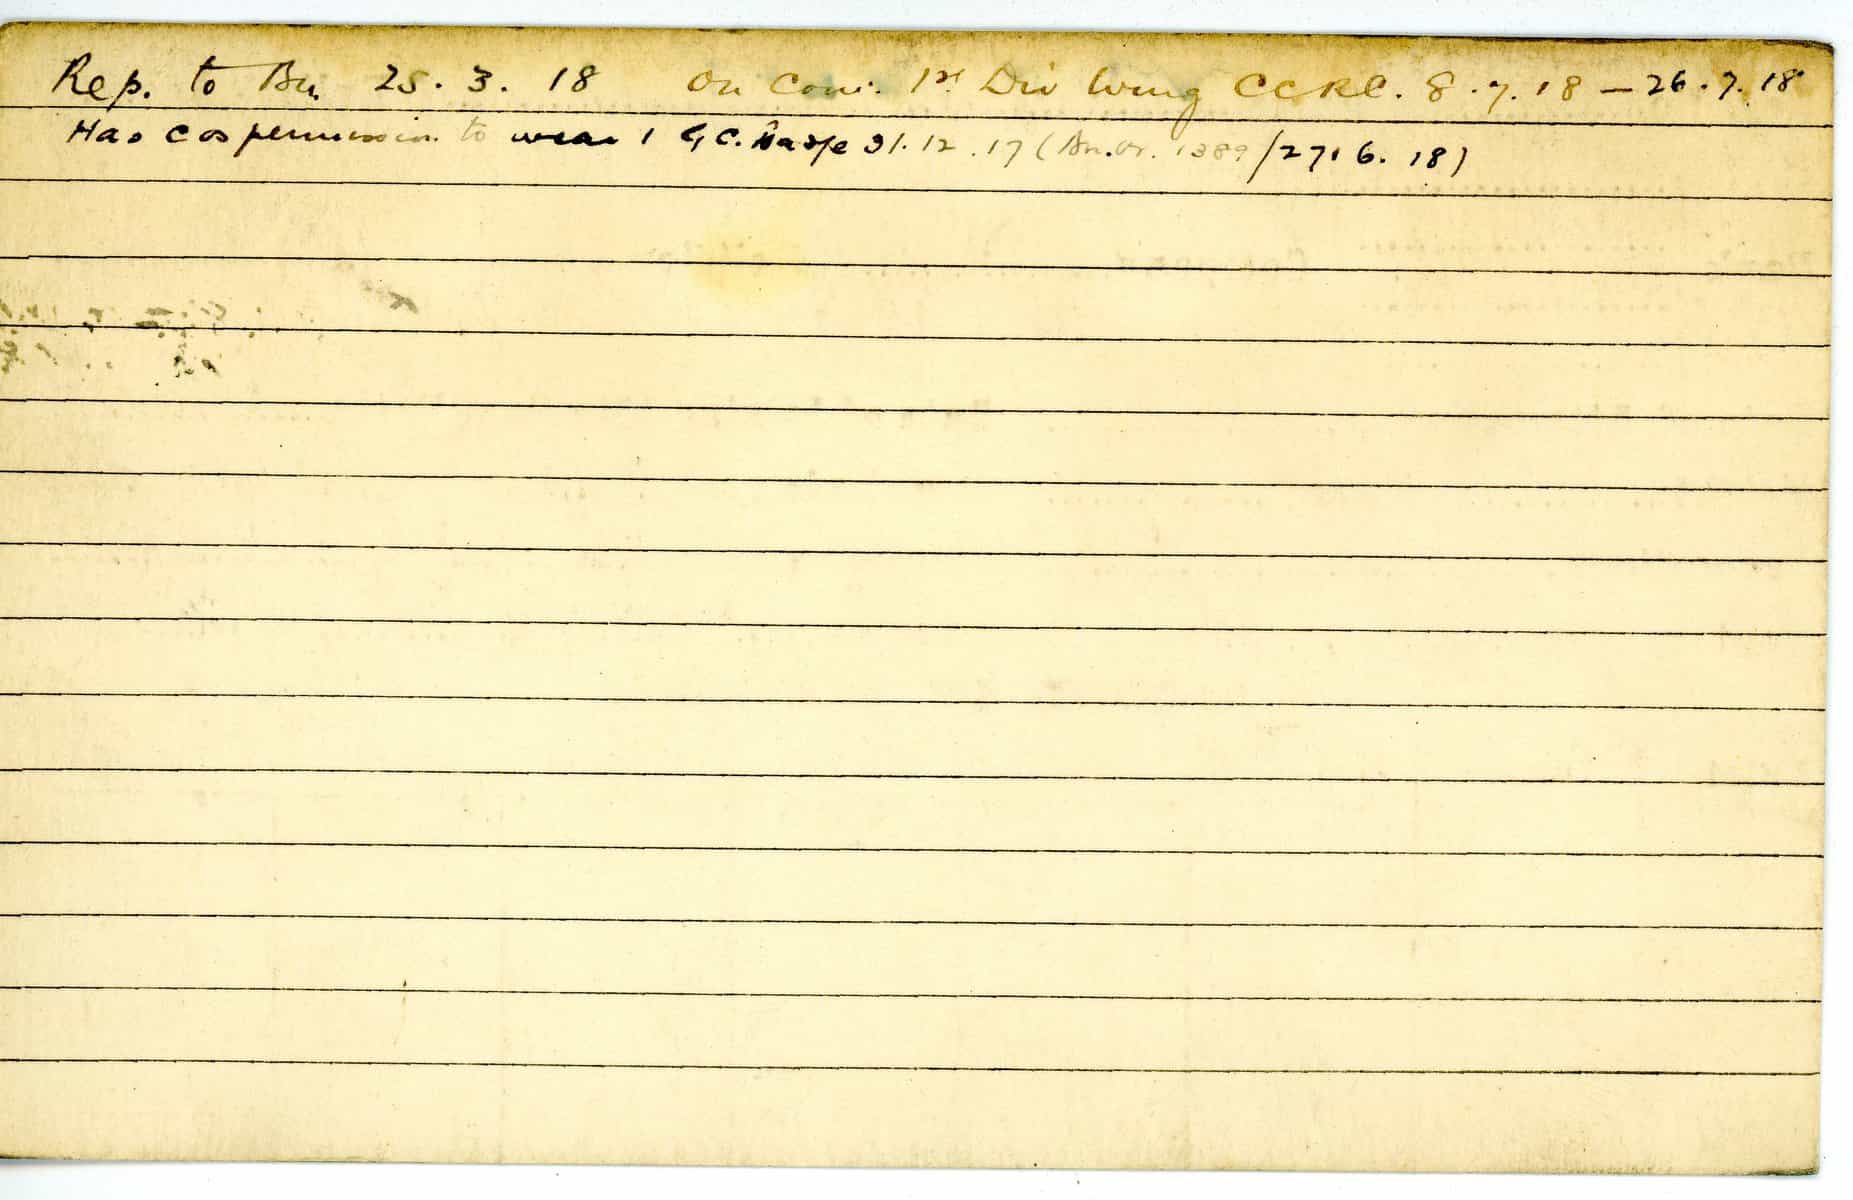 Rep. to Bn. 25. 3. 18 On Com. 1st Div Wing CCRC. 8. 7. 18 — 26. 7. 18
Has COs permission to wear 1 G.C. Badge 31. 12. 17 (Bn. Or. 1389/27. 6. 18)